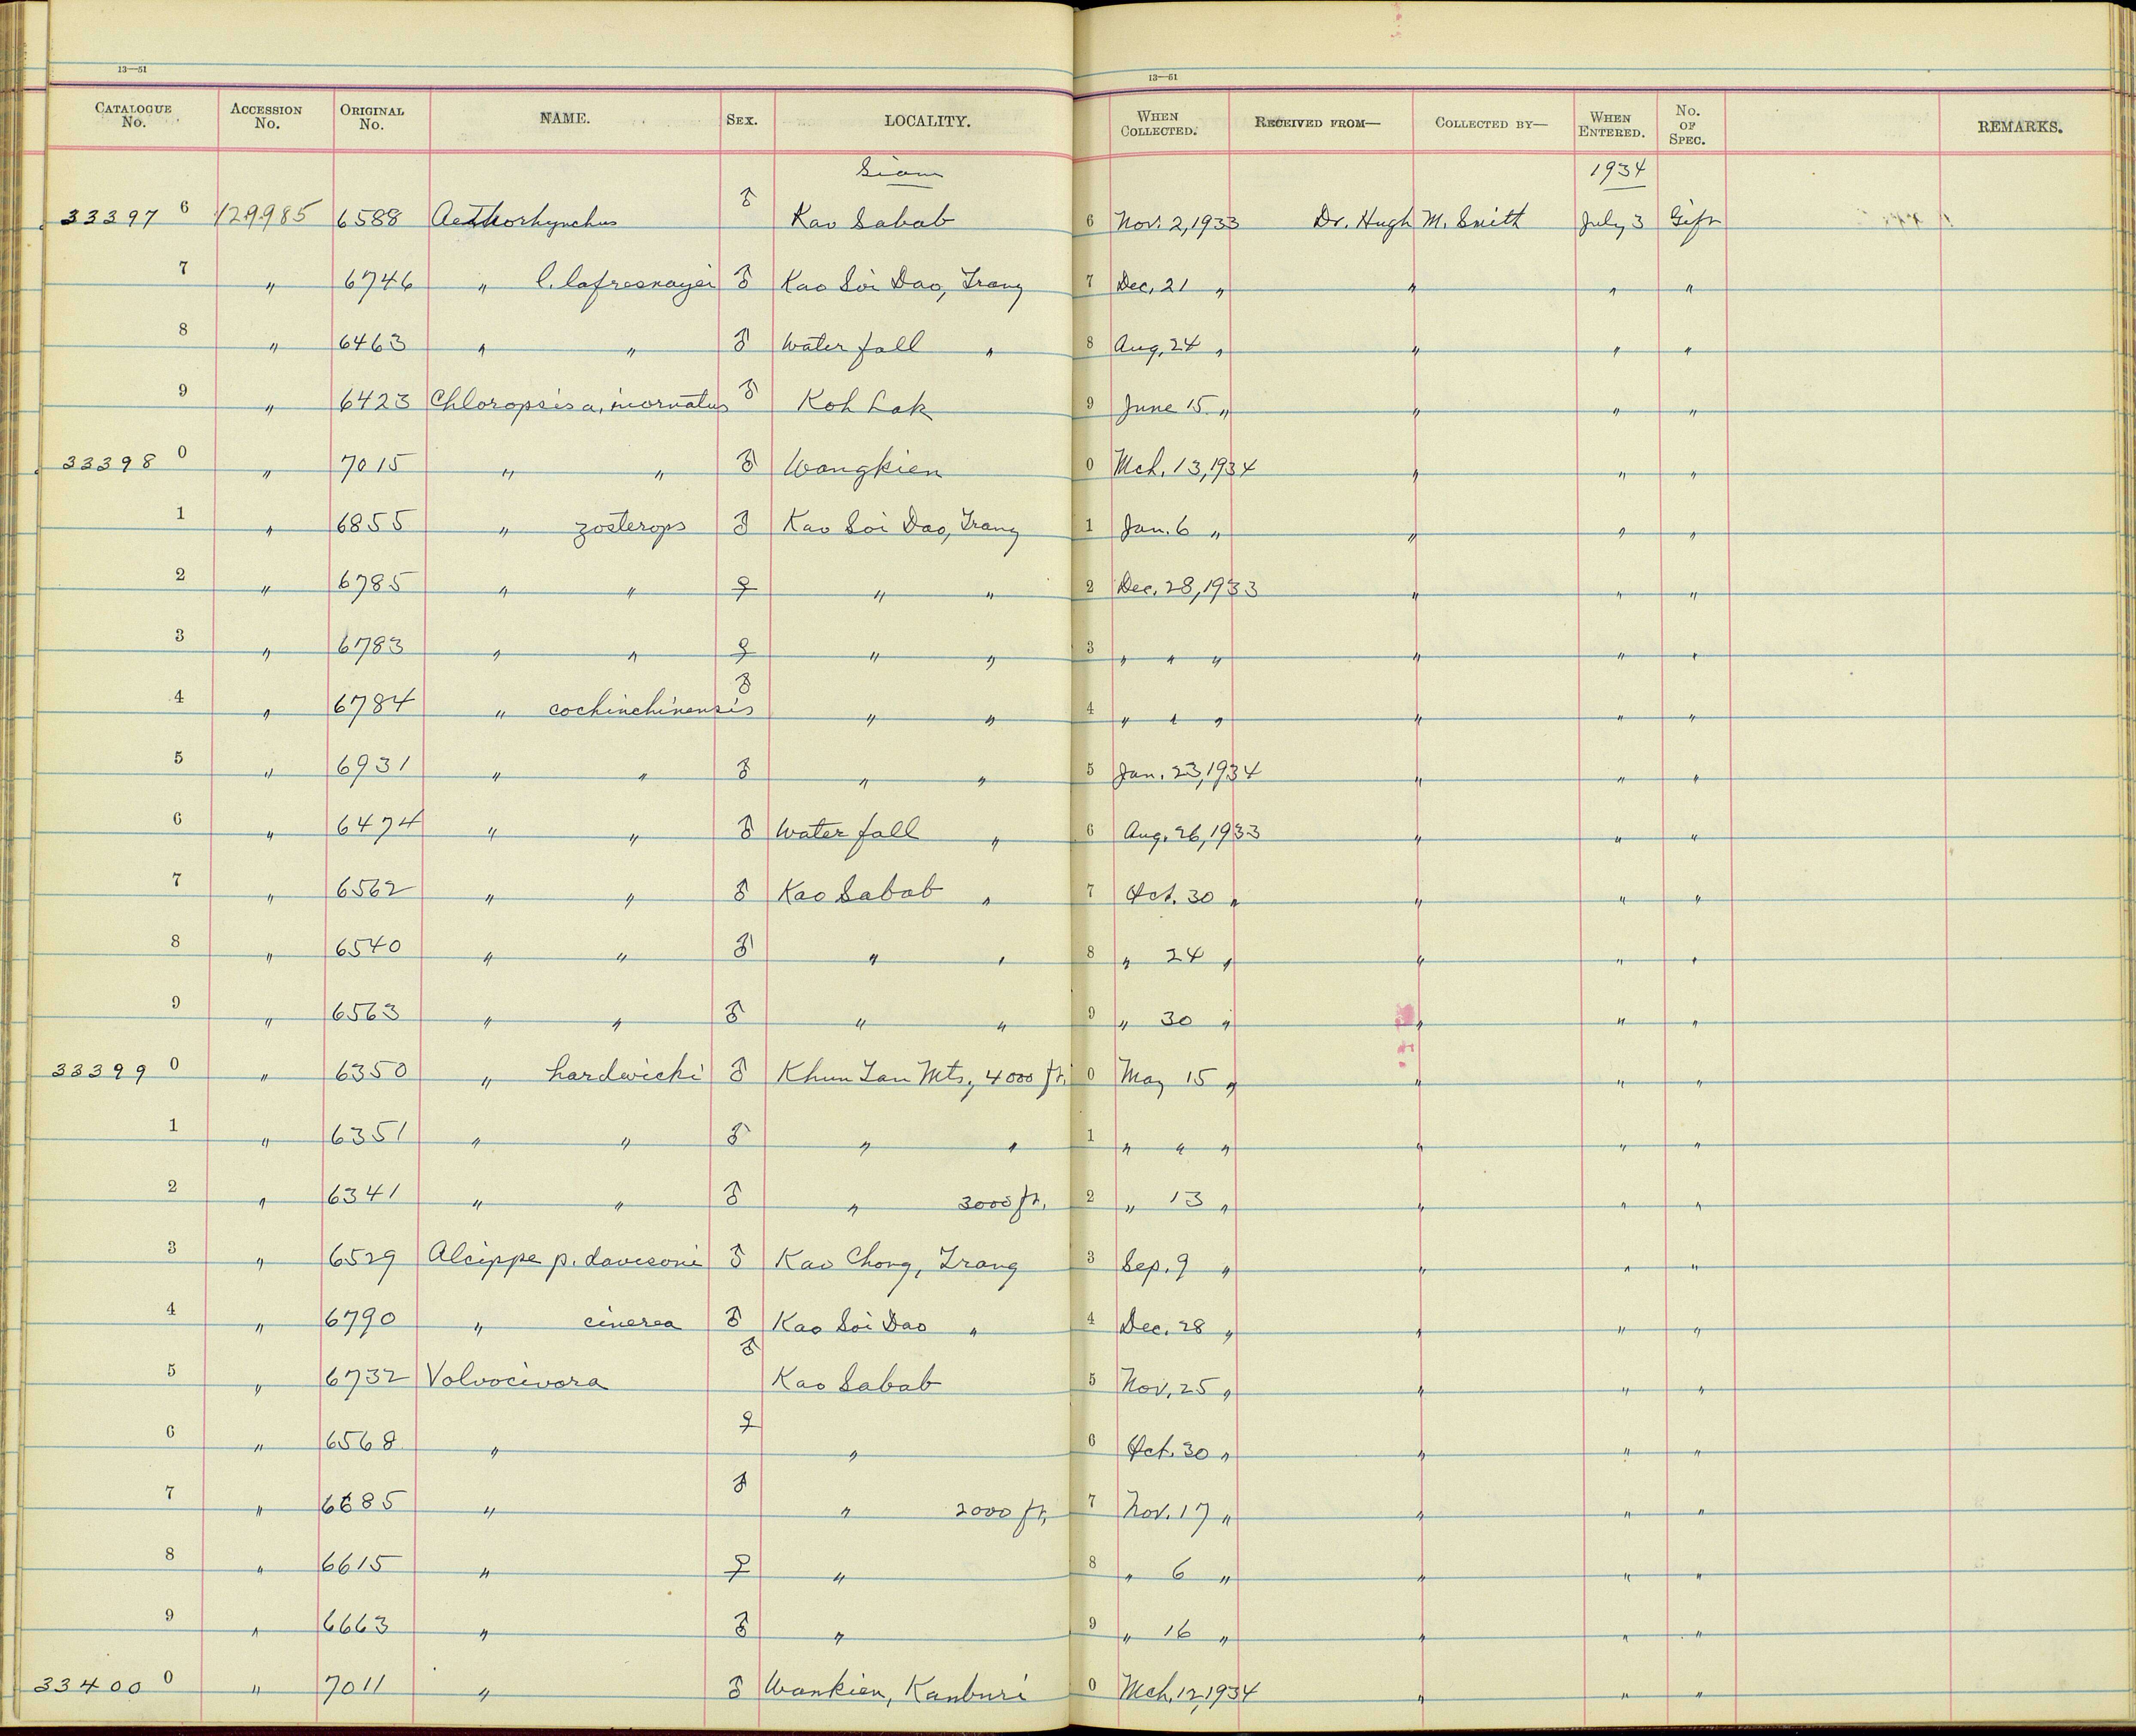 13—51 13—51
CATALOGUE No. ACCESSION No. ORIGINAL No. NAME. SEX. LOCALITY. WHEN COLLECTED. RECEIVED FROM— COLLECTED BY— WHEN ENTERED. No. OF SPEC. REMARKS.
Siam 1934
33397 6 129985 6588 Aethorhynchus ♂ Kao Sabab 6 Nov. 2, 1933 Dr. Hugh M. Smith July 3 Gift
7 " 6746 " l. lafresnayei ♂ Kao Soi Dao, Trang 7 Dec. 21 " " " "
8 " 6463 " " ♂ Water fall " 8 Aug. 24 " " " "
9 " 6423 Chloropsis a. inornatus ♂ Koh Lak 9 June 15 " " " "
33398 0 " 7015 " " ♂ Wangkien 0 Mch. 13, 1934 " " "
1 " 6855 " zosterops ♂ Kao Soi Dao, Trang 1 Jan. 6 " " " "
2 " 6785 " " ♀ " " 2 Dec. 28, 1933 " " "
3 " 6783 " " ♀ " " 3 " " " " " "
4 " 6784 " cochinchinensis ♂ " " 4 " " " " " "
5 " 6931 " " ♂ " " 5 Jan. 23, 1934 " " "
6 " 6474 " " ♂ Water fall " 6 Aug. 26, 1933 " " "
7 " 6562 " " ♂ Kao Sabab " 7 Oct. 30 " " " "
8 " 6540 " " ♂ " " 8 " 24 " " " "
9 " 6563 " " ♂ " " 9 " 30 " " " "
33399 0 " 6350 " hardwicki ♂ Khun Tan Mts., 4000 ft. 0 May 15 " " " "
1 " 6351 " " ♂ " " 1 " " " " " "
2 " 6341 " " ♂ " 3000 ft. 2 " 13 " " " "
3 " 6529 Alcippe p. davisoni ♂ Kao Chong, Trang 3 Sep. 9 " " " "
4 " 6790 " cinerea ♂ Kao Soi Dao " 4 Dec. 28 " " " "
5 " 6732 Volvocivora ♂ Kao Sabab 5 Nov. 25 " " " "
6 " 6568 " ♀ " 6 Oct. 30 " " " "
7 " 6685 " ♂ " 2000 ft. 7 Nov. 17 " " " "
8 " 6615 " ♀ " 8 " 6 " " " "
9 " 6663 " ♂ " 9 " 16 " " " "
33400 0 " 7011 " ♂ Wankien, Kanburi 0 Mch. 12, 1934 " " "